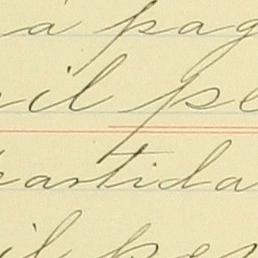 a pag
il pe
partida
il pe